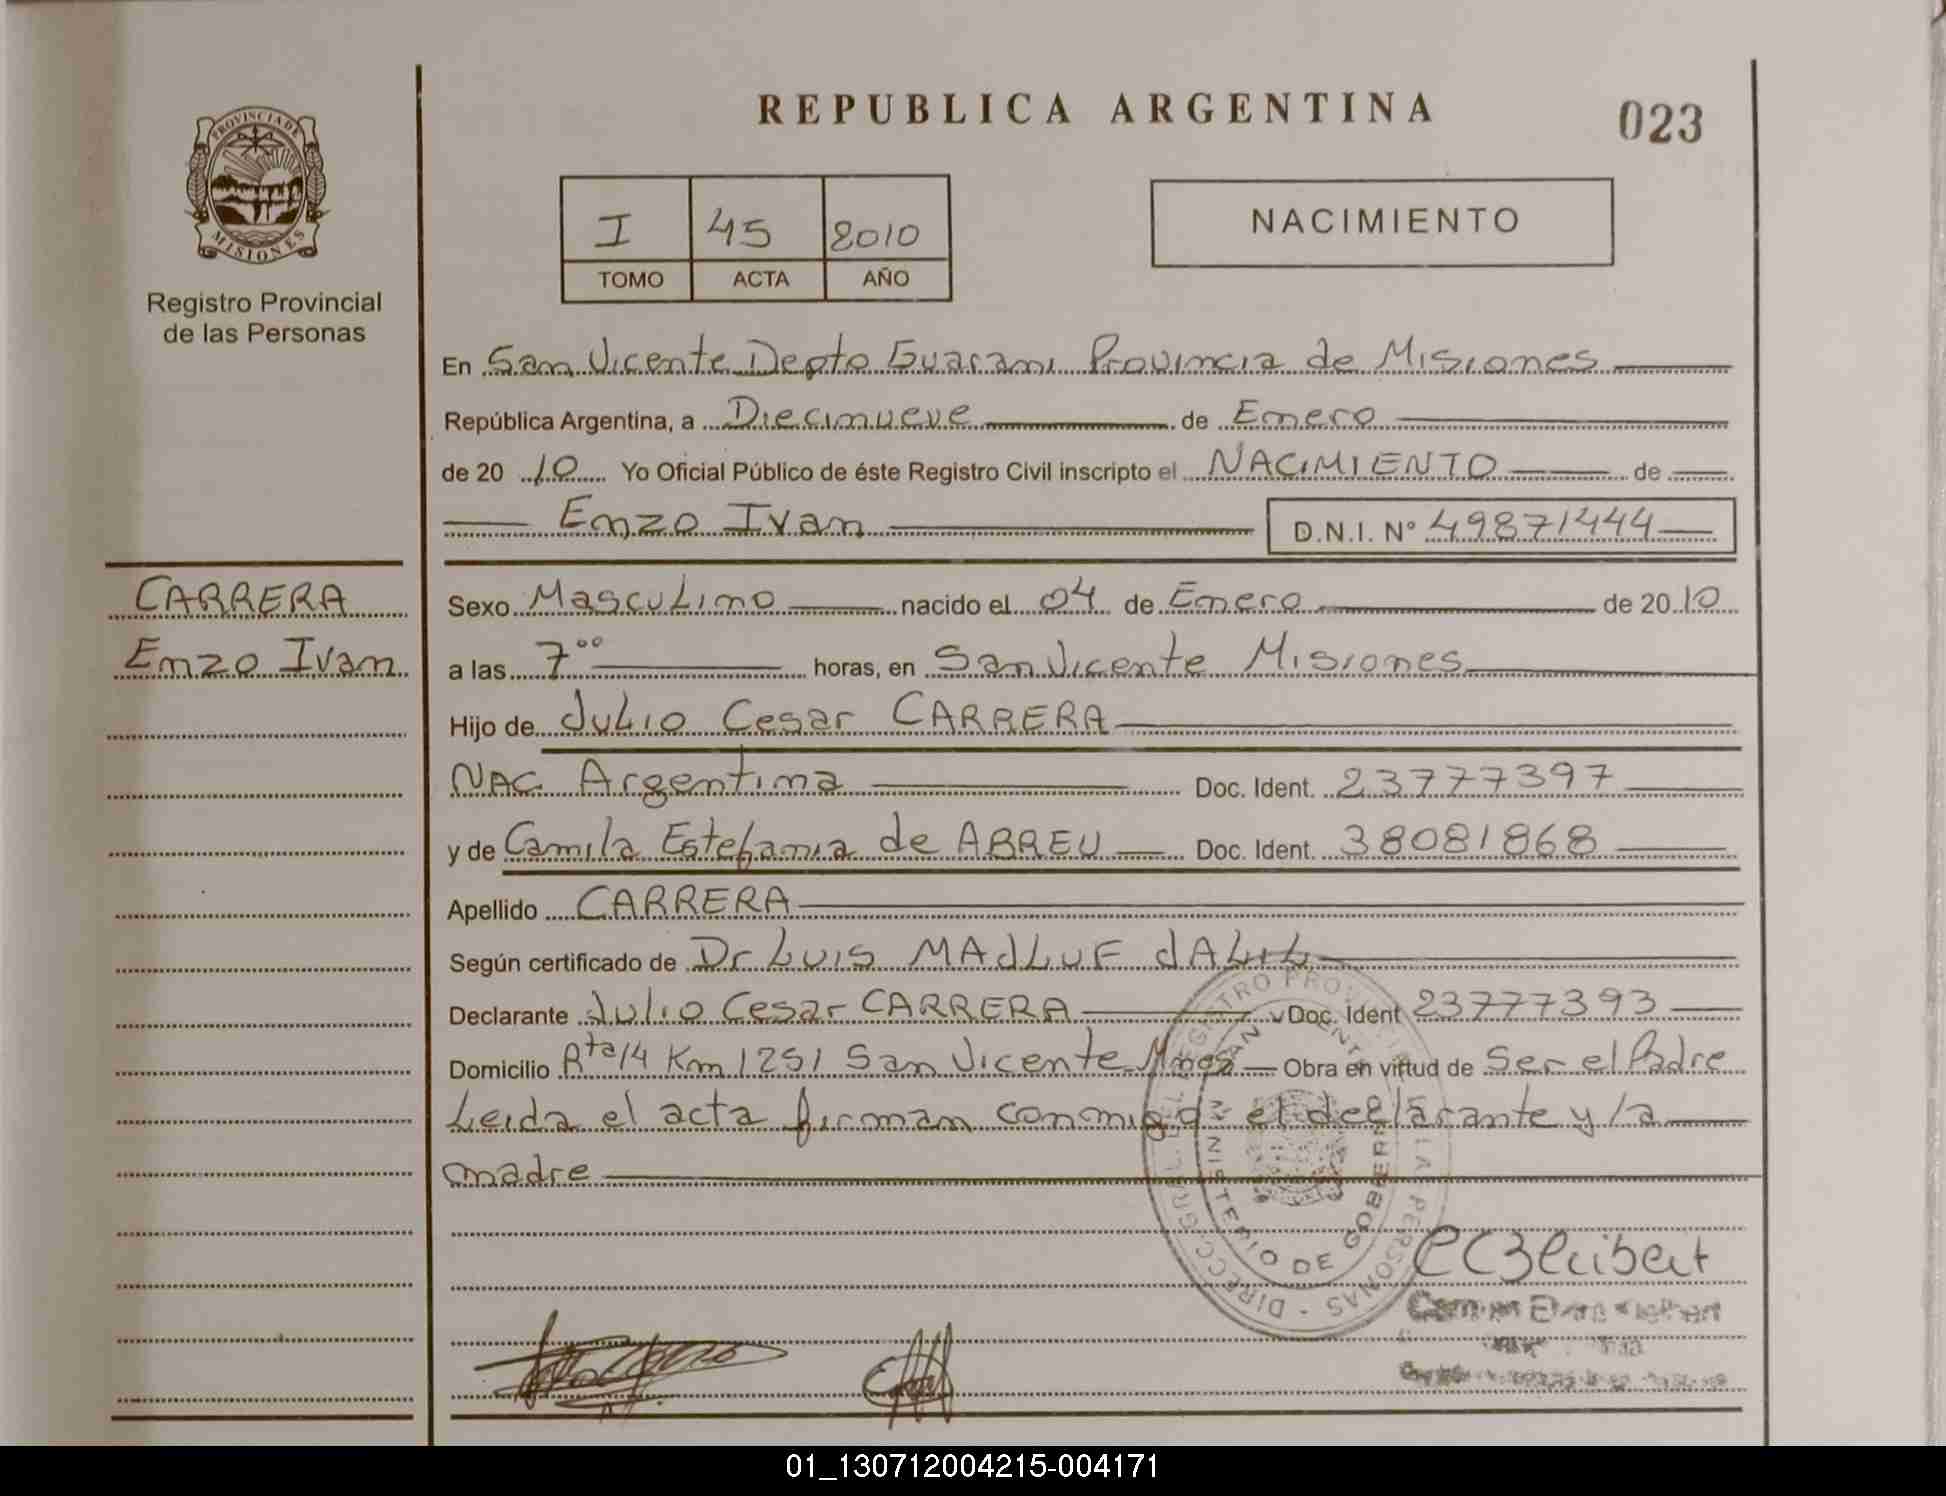 REPUBLICA ARGENTINA
023
PROVINCIA DE
MISIONES
Registro Provincial
de las Personas
I 45 2010
TOMO ACTA AÑO
NACIMIENTO
En San Vicente Depto Guarani Provincia de Misiones
República Argentina, a Diecinueve de Enero
de 20 10 Yo Oficial Público de éste Registro Civil inscripto el NACIMIENTO de
Enzo Ivan D.N.I. Nº 49871444
CARRERA
Enzo Ivan
Sexo Masculino nacido el 04 de Enero de 20 10
a las 7ºº horas, en San Vicente Misiones
Hijo de Julio Cesar CARRERA
NAC. Argentina Doc. Ident. 23777397
y de Camila Estefania de ABREU Doc. Ident. 38081868
Apellido CARRERA
Según certificado de Dr LUIS MADLUF dALIL
Declarante Julio Cesar CARRERA Doc. Ident 23777393
Domicilio Rta 14 Km 1251 San Vicente Mnes Obra en virtud de Ser el Padre
Leida el acta firman conmigo el declarante y la
madre
MINISTERIO DE GOBIERNO
01_130712004215-004171